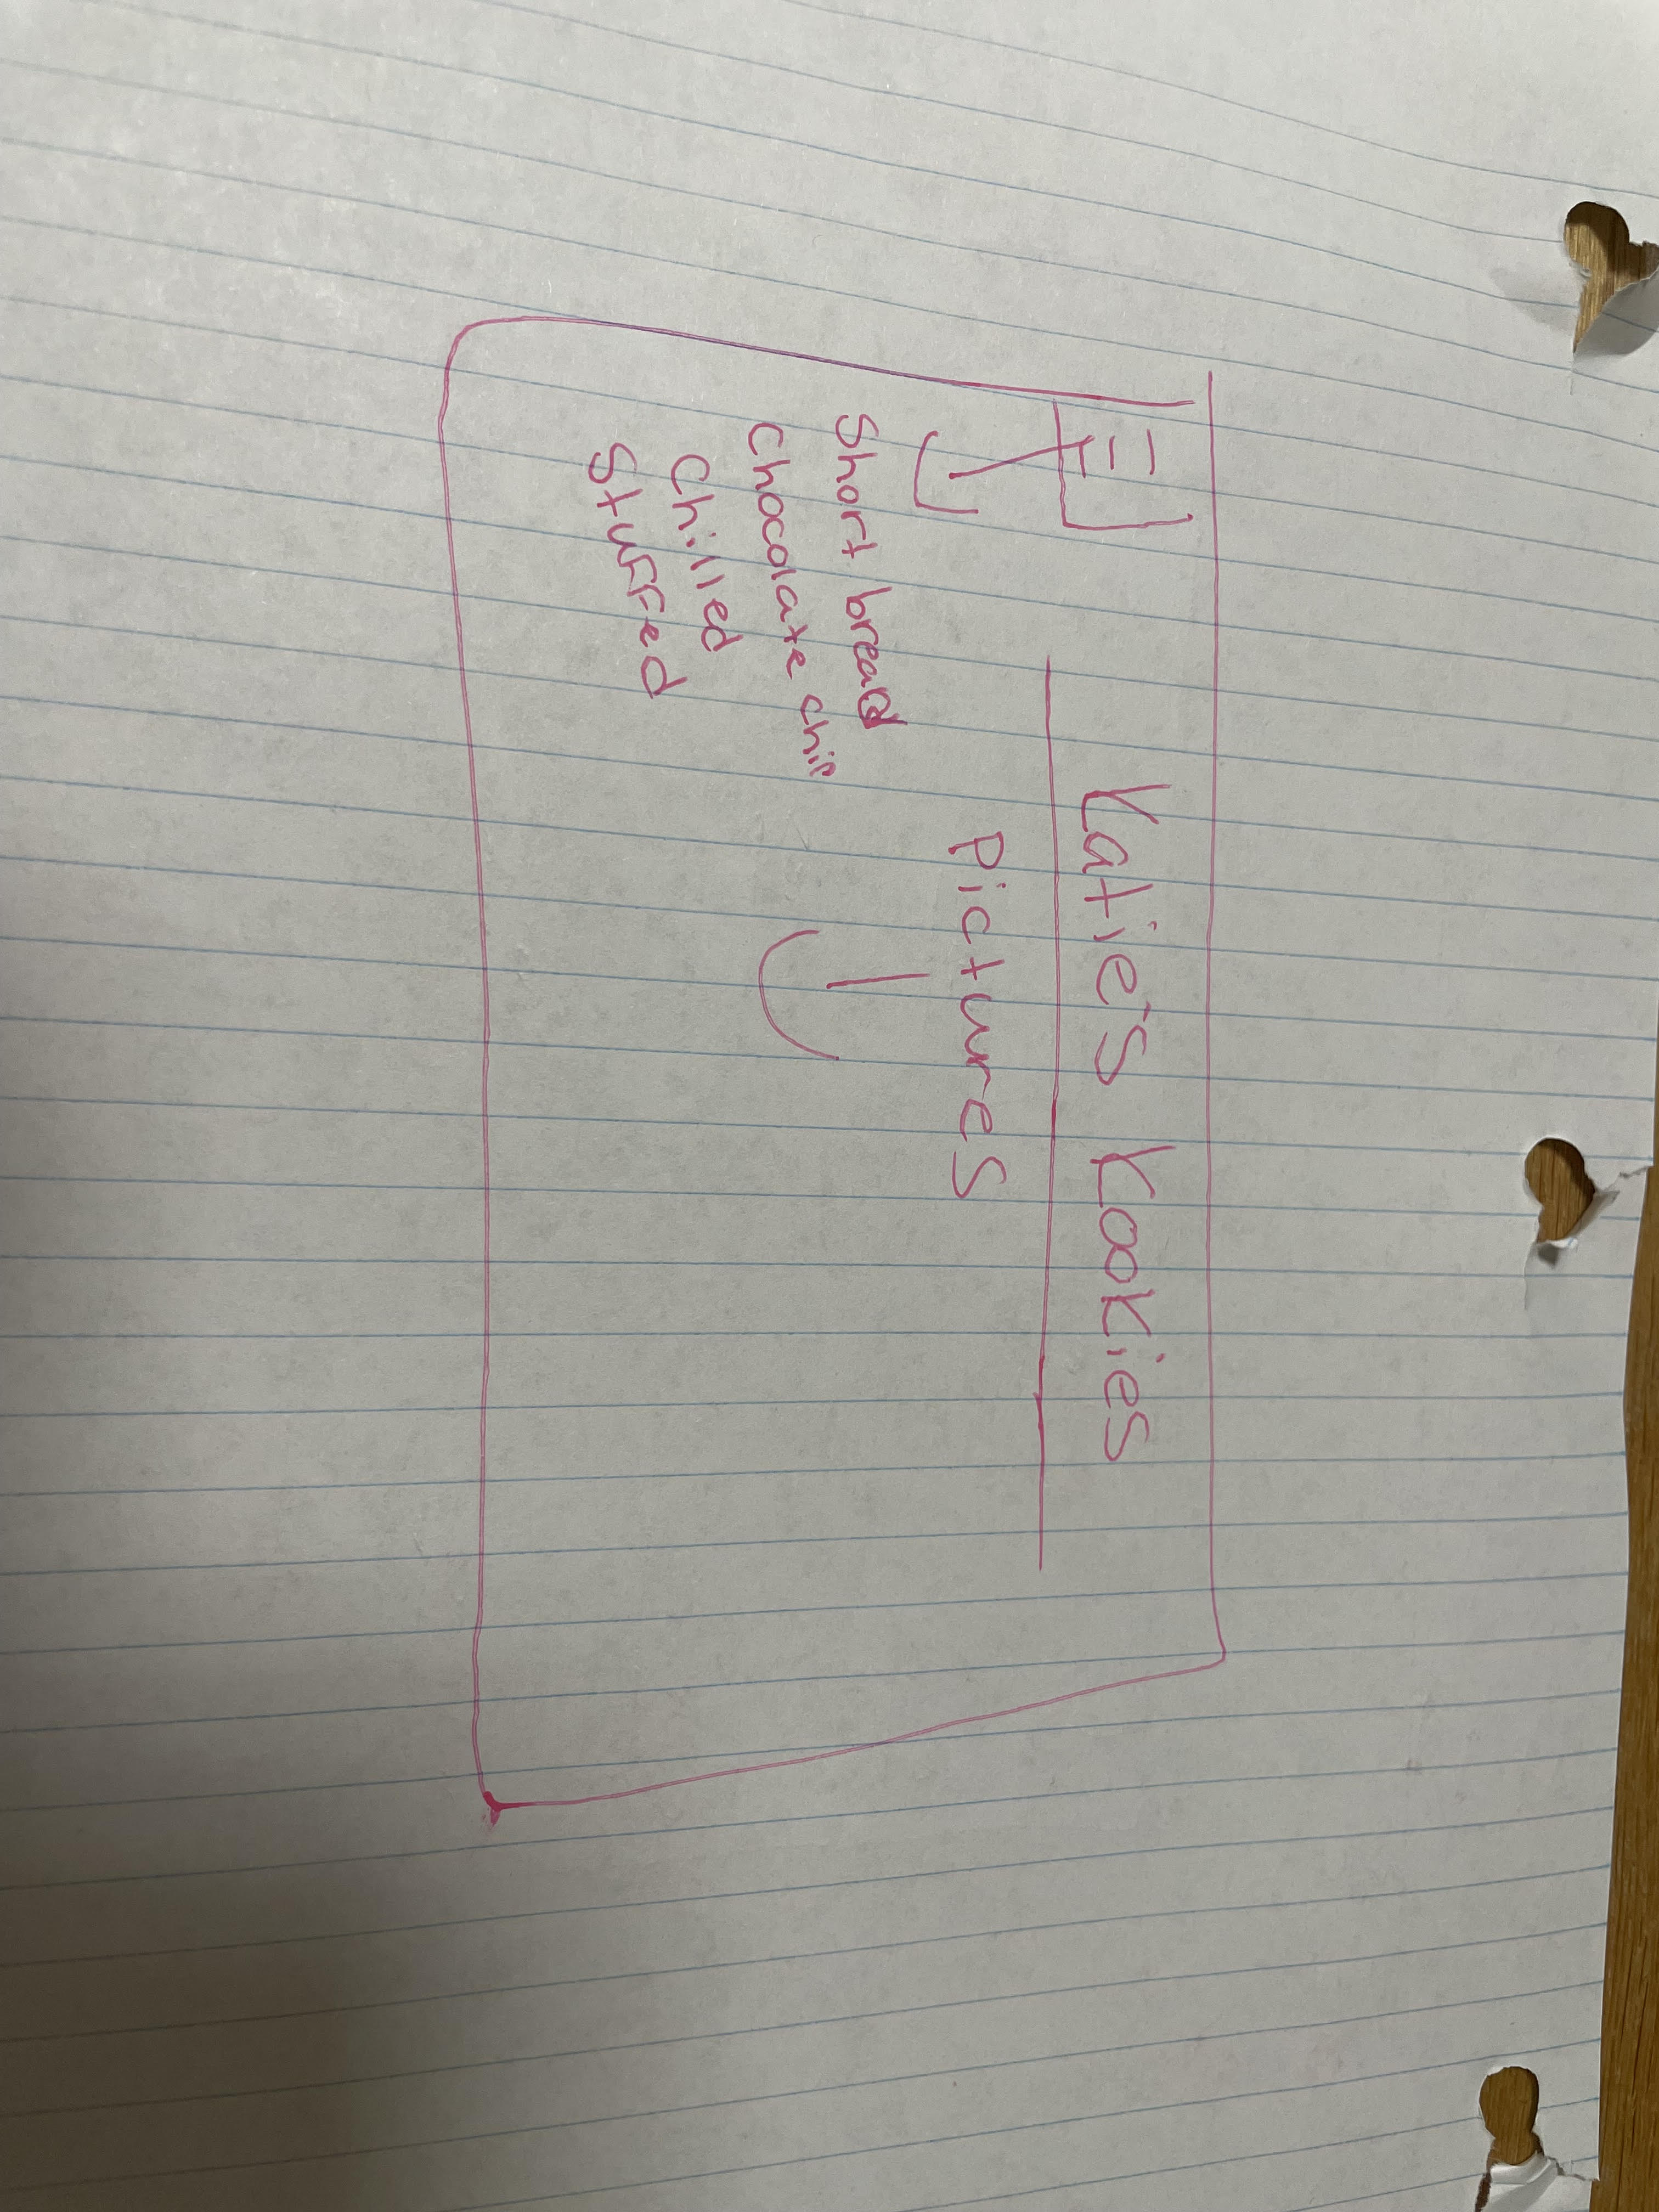 Katie's Kookies
Pictures
Short bread
Chocolate chip
Chilled
Stuffed